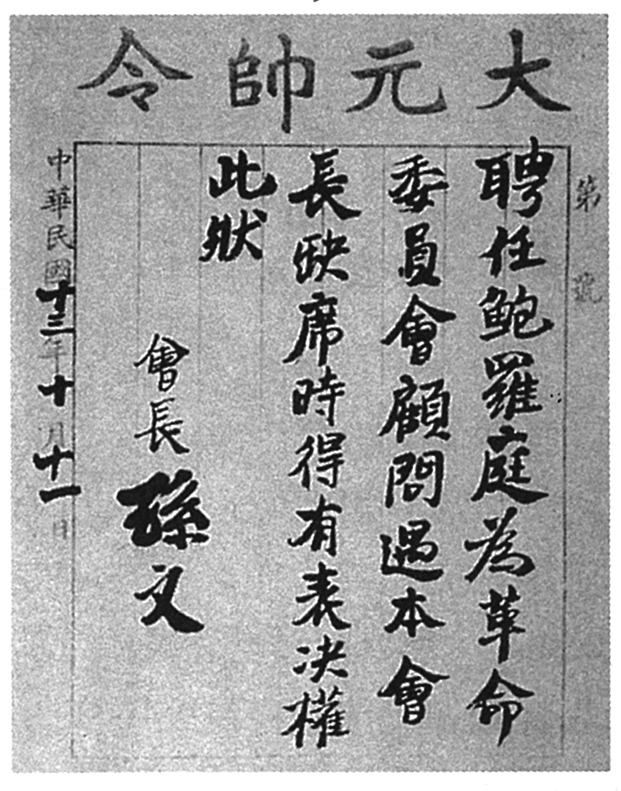 大元帥令
第 號
聘任鮑羅庭為革命
委員會顧問遇本會
長缺席時得有表决權
此狀
會長孫文
中華民國十三年十月十一日